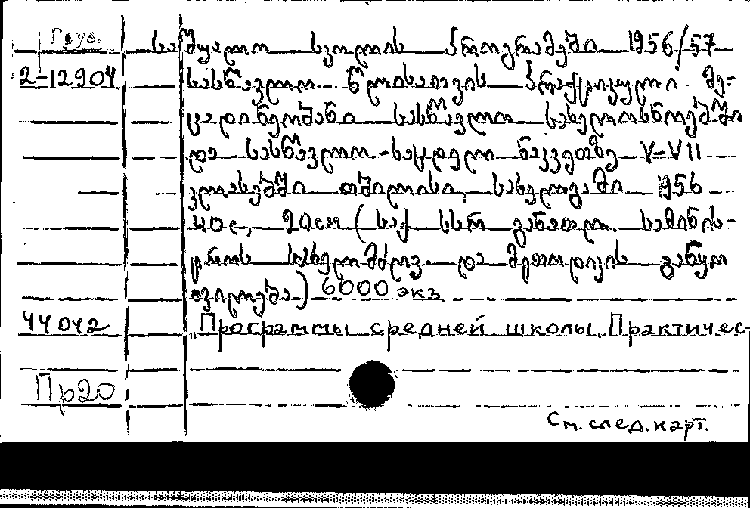 Груз. საშუალო სკოლის პროგრამები 1956/57
2-12904 სასწავლო წლისათვის პრაქტიკული მე-
ცადინეობანი სასწავლო სახელოსნოებში
და სასწავლო-საცდელ ნაკვეთზე V-VII
კლასებში თბილისი, სახელგამი 1956
40с, 20см (საქ სსრ განათლ. სამინის-
ტროს სახელმძღვ. და მეთოდიკის განყო
ფილება) 6000 экз.
44042 Программы средней школы. Практичес-
Пр20
См. след. карт.